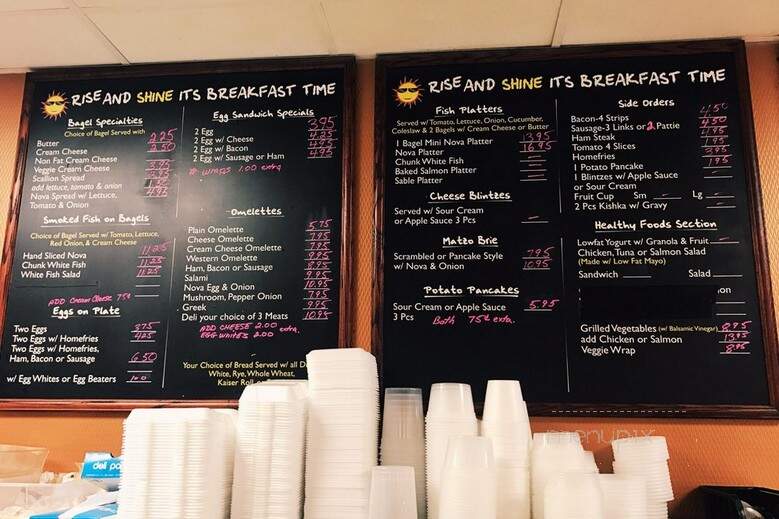 RISE AND SHINE ITS BREAKFAST TIME
Bagel Specialties
Choice of Bagel Served with
Butter 2.25
Cream Cheese 2.50
Non Fat Cream Cheese
Veggie Cream Cheese
Scallion Spread
add lettuce, tomato & onion
Nova Spread w/ Lettuce,
Tomato & Onion
Smoked Fish on Bagels
Choice of Bagel Served w/ Tomato, Lettuce,
Red Onion, & Cream Cheese
Hand Sliced Nova 11.25
Chunk White Fish 11.25
White Fish Salad 11.25
ADD Cream Cheese 75¢
Eggs on Plate
Two Eggs 3.75
Two Eggs w/ Homefries 4.25
Two Eggs w/ Homefries,
Ham, Bacon or Sausage 6.50
w/ Egg Whites or Egg Beaters 1.00
Egg Sandwich Specials
2 Egg 3.95
2 Egg w/ Cheese
2 Egg w/ Bacon 4.95
2 Egg w/ Sausage or Ham 4.95
# WHITES 1.00 extra
Omelettes
Plain Omelette 5.75
Cheese Omelette 7.95
Cream Cheese Omelette 7.95
Western Omelette 8.95
Ham, Bacon or Sausage 8.95
Salami 8.95
Nova Egg & Onion 10.95
Mushroom, Pepper Onion 7.95
Greek 9.95
Deli your choice of 3 Meats 10.95
ADD CHEESE 2.00 extra.
EGG WHITES 2.00
Your Choice of Bread Served w/ all
White, Rye, Whole Wheat,
Kaiser Roll
RISE AND SHINE ITS BREAKFAST TIME
Fish Platters
Served w/ Tomato, Lettuce, Onion, Cucumber,
Coleslaw & 2 Bagels w/ Cream Cheese or Butter
1 Bagel Mini Nova Platter 13.95
Nova Platter 16.95
Chunk White Fish –
Baked Salmon Platter –
Sable Platter –
Cheese Blintzes
Served w/ Sour Cream
or Apple Sauce 3 Pcs –
Matzo Brie
Scrambled or Pancake Style 7.95
w/ Nova & Onion 10.95
Potato Pancakes
Sour Cream or Apple Sauce 5.95
3 Pcs Both 75¢ extra.
Side Orders
Bacon-4 Strips 4.50
Sausage-3 Links or 2 Pattie 4.50
Ham Steak 4.95
Tomato 4 Slices 1.95
Homefries 3.95
1 Potato Pancake 1.95
1 Blintzes w/ Apple Sauce
or Sour Cream
Fruit Cup Sm – Lg –
2 Pcs Kishka w/ Gravy –
Healthy Foods Section
Lowfat Yogurt w/ Granola & Fruit –
Chicken, Tuna or Salmon Salad
(Made w/ Low Fat Mayo)
Sandwich Salad
on
Grilled Vegetables (w/ Balsamic Vinegar) 8.95
add Chicken or Salmon 13.95
Veggie Wrap 8.95
menupix